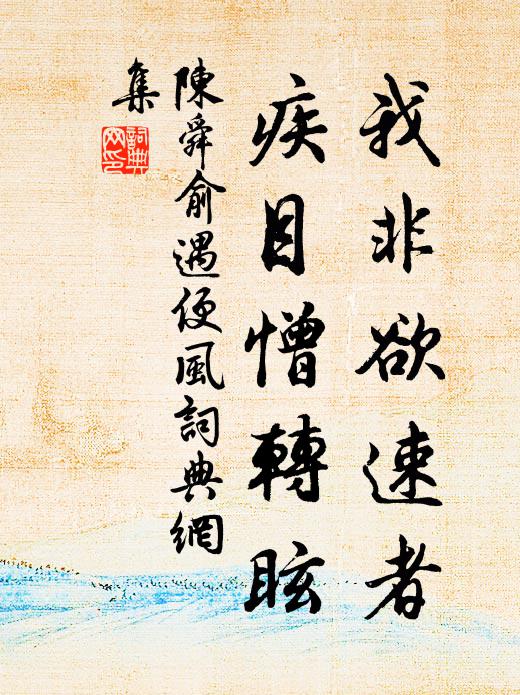 我非欲速者
疾目憎轉眩
陳舜俞遇便風詞典網
集
詞典
网印